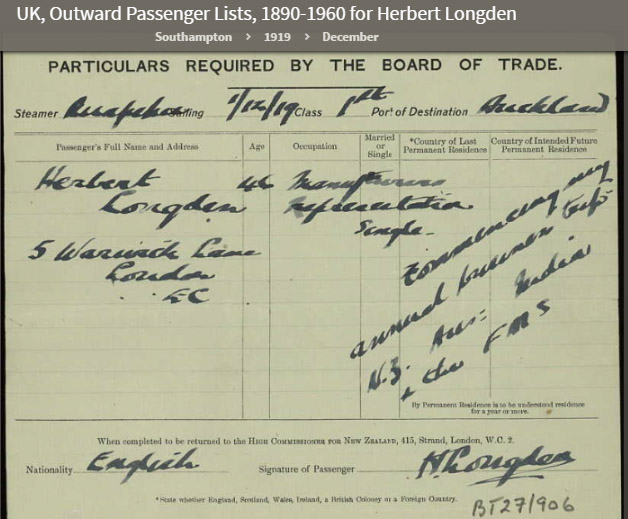 UK, Outward Passenger Lists, 1890-1960 for Herbert Longden
Southampton > 1919 > December
PARTICULARS REQUIRED BY THE BOARD OF TRADE.
Steamer Ruapehu Sailing 1/12/19 Class 1st Port of Destination Auckland
Passenger's Full Name and Address Age Occupation Married or Single *Country of Last Permanent Residence Country of Intended Future Permanent Residence
Herbert 46
Longden representative
Single
5 Warwick Lane
London
EC
commencing my
annual business trip
N.Z. Aus: India
& the FMS
By Permanent Residence is to be understood residence
for a year or more.
When completed to be returned to the HIGH COMMISSIONER FOR NEW ZEALAND, 415, Strand, London, W.C. 2.
Nationality English Signature of Passenger H Longden
*State whether England, Scotland, Wales, Ireland, a British Colony or a Foreign Country.
BT27/906